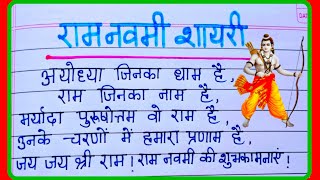 राम नवमी शायरी
अयोध्या जिनका धाम है,
राम जिनका नाम है,
मर्यादा पुरूषोत्तम वो राम है,
उनके चरणों में हमारा प्रणाम है,
जय जय श्री राम! राम नवमी की शुभकामनाएं!